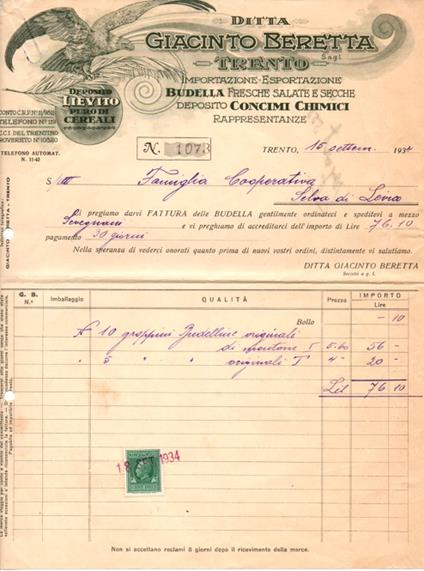 DITTA
GIACINTO BERETTA
S.a g.l.
TRENTO
IMPORTAZIONE-ESPORTAZIONE
BUDELLA FRESCHE SALATE E SECCHE
DEPOSITO CONCIMI CHIMICI
RAPPRESENTANZE
DEPOSITO
LIEVITO
PURO DI
CEREALI
TELEFONO
C.C.I. DEL TRENTINO
ROVERETO
TELEFONO AUTOMAT.
N. 11-42
N. 1073
TRENTO, 15 settem. 1934
Famiglia Cooperativa
Selva di Levico
Vi pregiamo darvi FATTURA delle BUDELLA gentilmente ordinateci e speditevi a mezzo
e vi preghiamo di accreditarci dell'importo di Lire 76.10
pagamento 30 giorni
Nella speranza di vederci onorati quanto prima di nuovi vostri ordini, distintamente vi salutiamo.
DITTA GIACINTO BERETTA
Società a g. l.
GIACINTO BERETTA - TRENTO
Indirizzo telegrafico:
G. B. N.° Imballaggio QUALITÀ Prezzo IMPORTO Lire
Bollo - 10
10 grappini Budelline originali
di montone I 5.60 56 -
5 " " originali I 4 - 20 -
Lit 76 10
18 SET 1934
Non si accettano reclami 8 giorni dopo il ricevimento della merce.